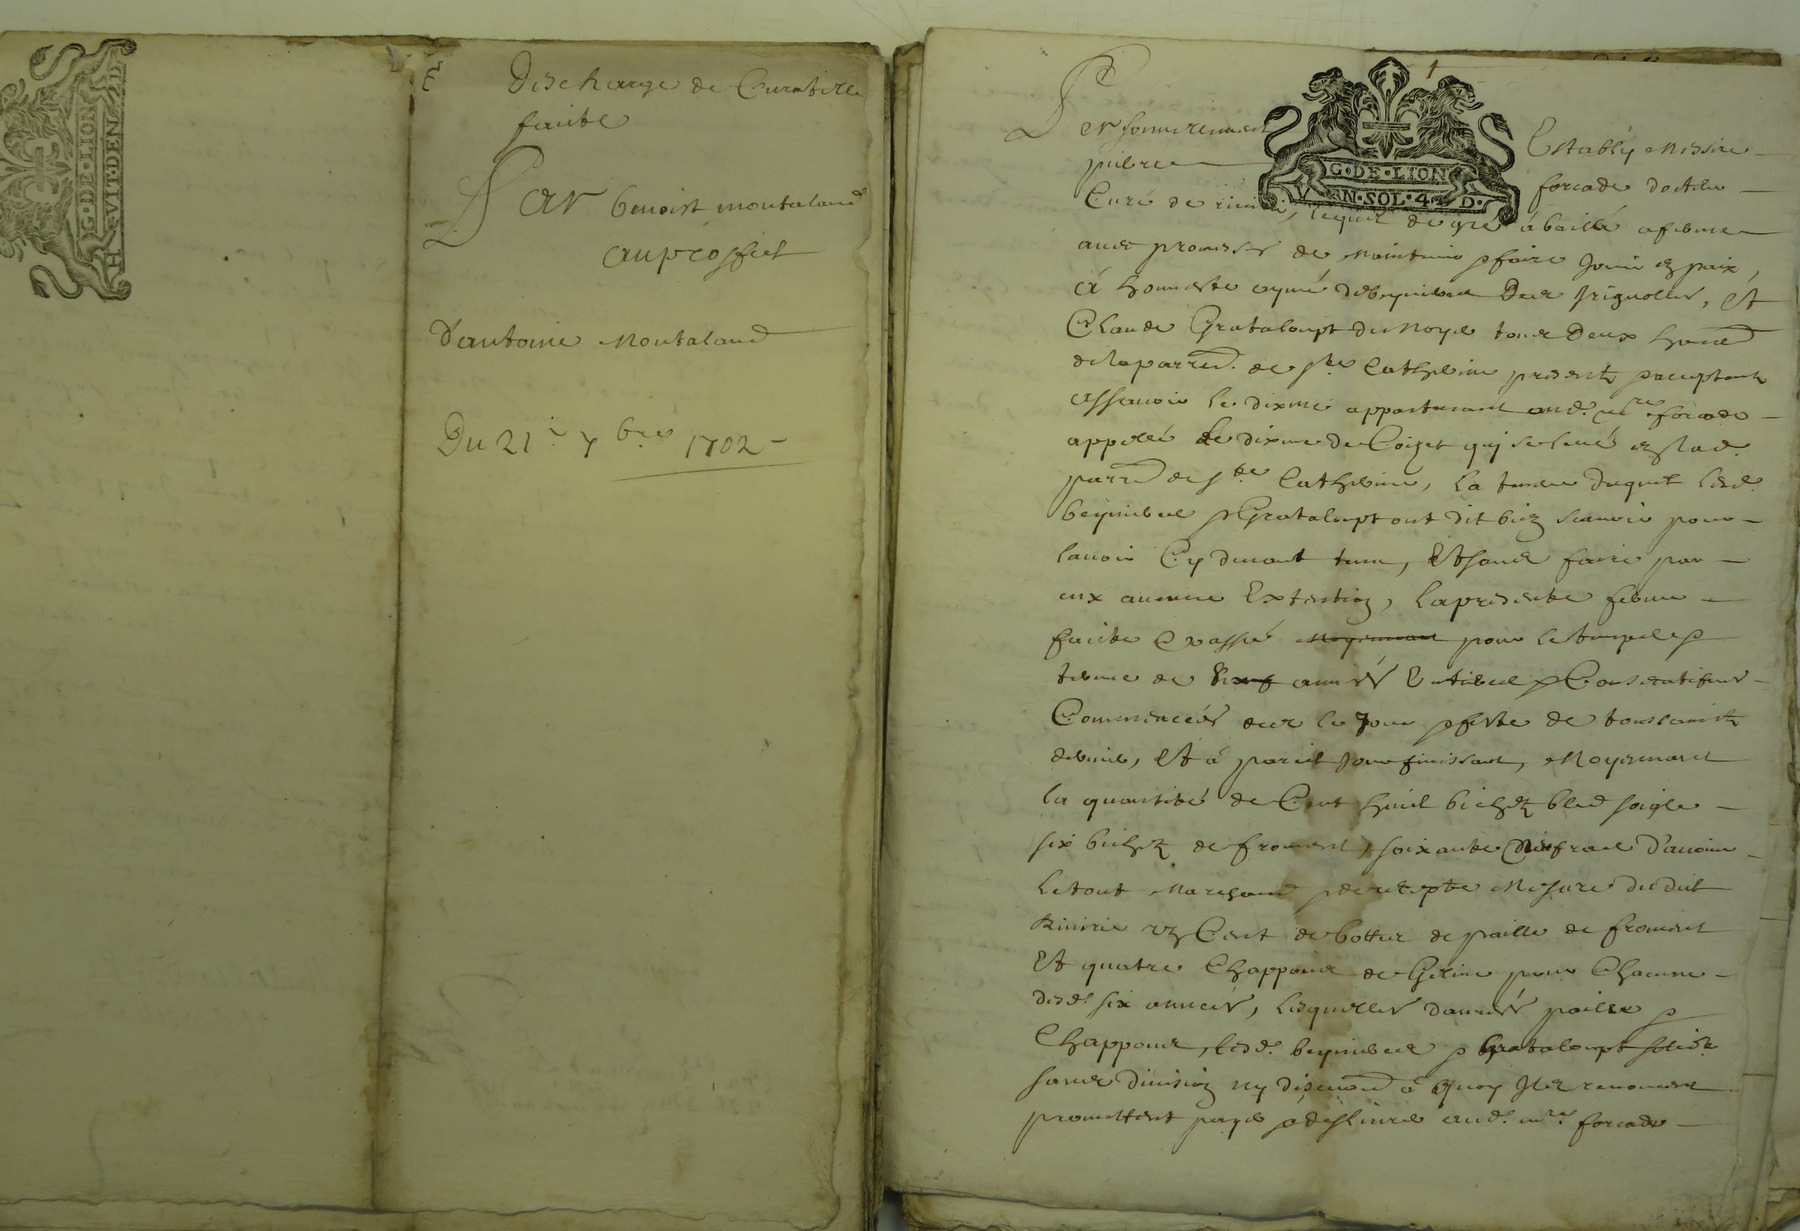 G·DE·LION
H·VIT·DEN·D
Descharge de Curatelle
faicte
Par benoist montaland
au profict
d'antoine Montaland
Du 21e 7bre 1702
G·DE·LION
AN·SOL·4·D·
Personnellement Estably Messire
pierre forcade docteur
Curé de lequel de gré à baillé a ferme
avec promesse de maintenir & faire Jouir en paix,
à honneste aymé Et
Claude Grataloupt du Noyer tous deux
de la parre. de Ste Catherine presents & acceptant
assavoir le dixme appartenant aud. mre forcade
appellé le dixme de Coizet qui se leve en lad.
parre de Ste Catherine, la teneur duquel lesd.
& Grataloupt ont dit bien scavoir pour
lavoir Cy devant tenu, Et sans faire par
eux aucune Extention, la presente ferme
faicte & passé moyennant pour le temps &
terme de six années Entieres & Consecutives
Commencées des le Jour & feste de toussaints
dernier, Et à pareil Jour finissant, Moyennant
la quantité de Cent huict bichets bled soigle
six bichets de froment, soixante d'avoine
le tout Marchand & de recepte Mesure dudit
Rivirie un Cent de bottes de paille de froment
Et quatre Chappons de Gerine pour Chacune
desd. six années, lesquelles danrées paille &
Chappons, lesd. & Grataloupt solid.
sans division ny discution à quoy Ils renoncent
promettent payer & deslivrer aud. mre forcade